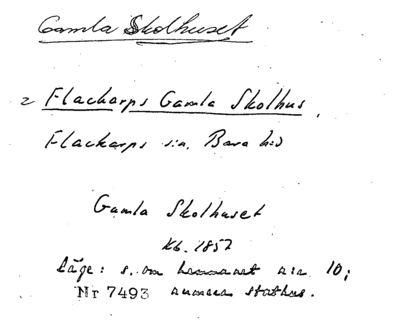 Gamla Skolhuset
2 Flackarps Gamla Skolhus,
Flackarps sn. Bara hd
Gamla Skolhuset
Kb. 1857
Läge: s. om hemmanet n:o 10;
Nr 7493 numera stathus.